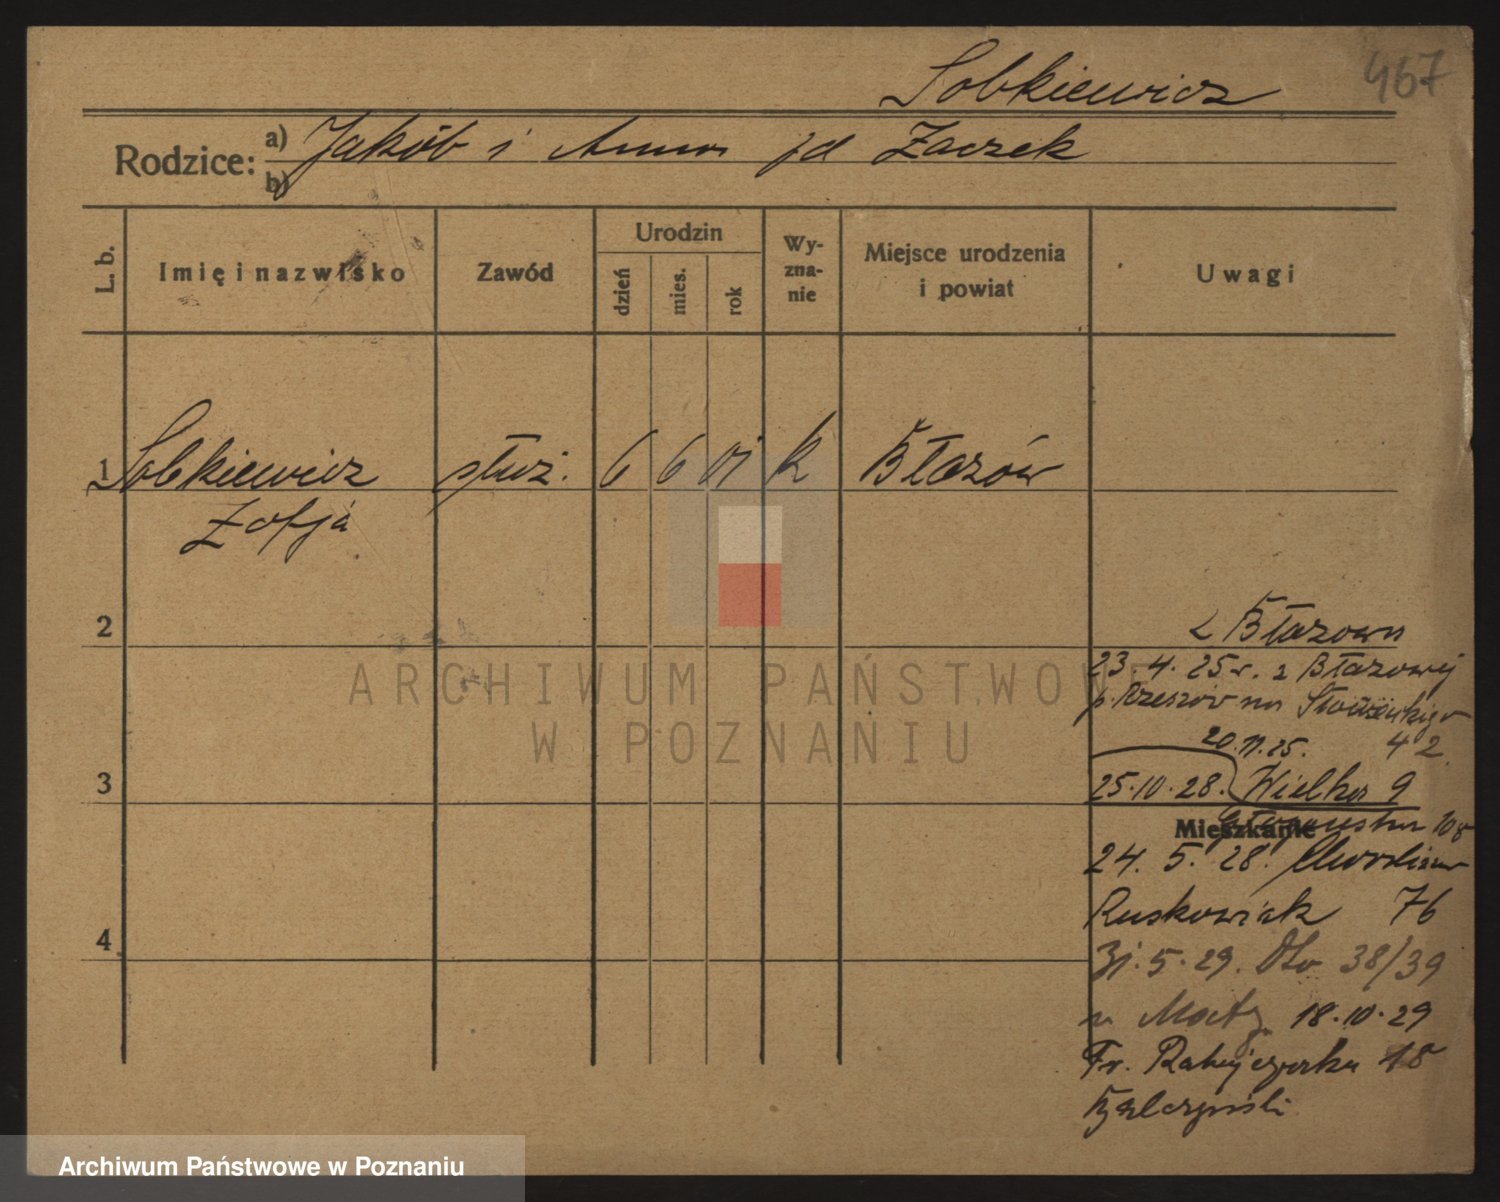 Sobkiewicz 467
Rodzice: a) Jakób i Anna zd Zaczek
b)
L. b. Imię i nazwisko Zawód Urodzin dzień mies. rok Wyznanie Miejsce urodzenia i powiat Uwagi
1 Sobkiewicz służ. 6 6 01 k Błazów
Zofja
2
z Błazowa
23. 4. 25 r. z Błazowej
p. Rzeszów na
20. 11. 25. 42
3
25.10.28. Wielka 9
Mieszkanie
24. 5. 28.
Ruskowiak 76
4
31. 5. 29. 38/39
u 18.10.29
Fr. Ratajczaka 18
ARCHIWUM PAŃSTWOWE
W POZNANIU
Archiwum Państwowe w Poznaniu